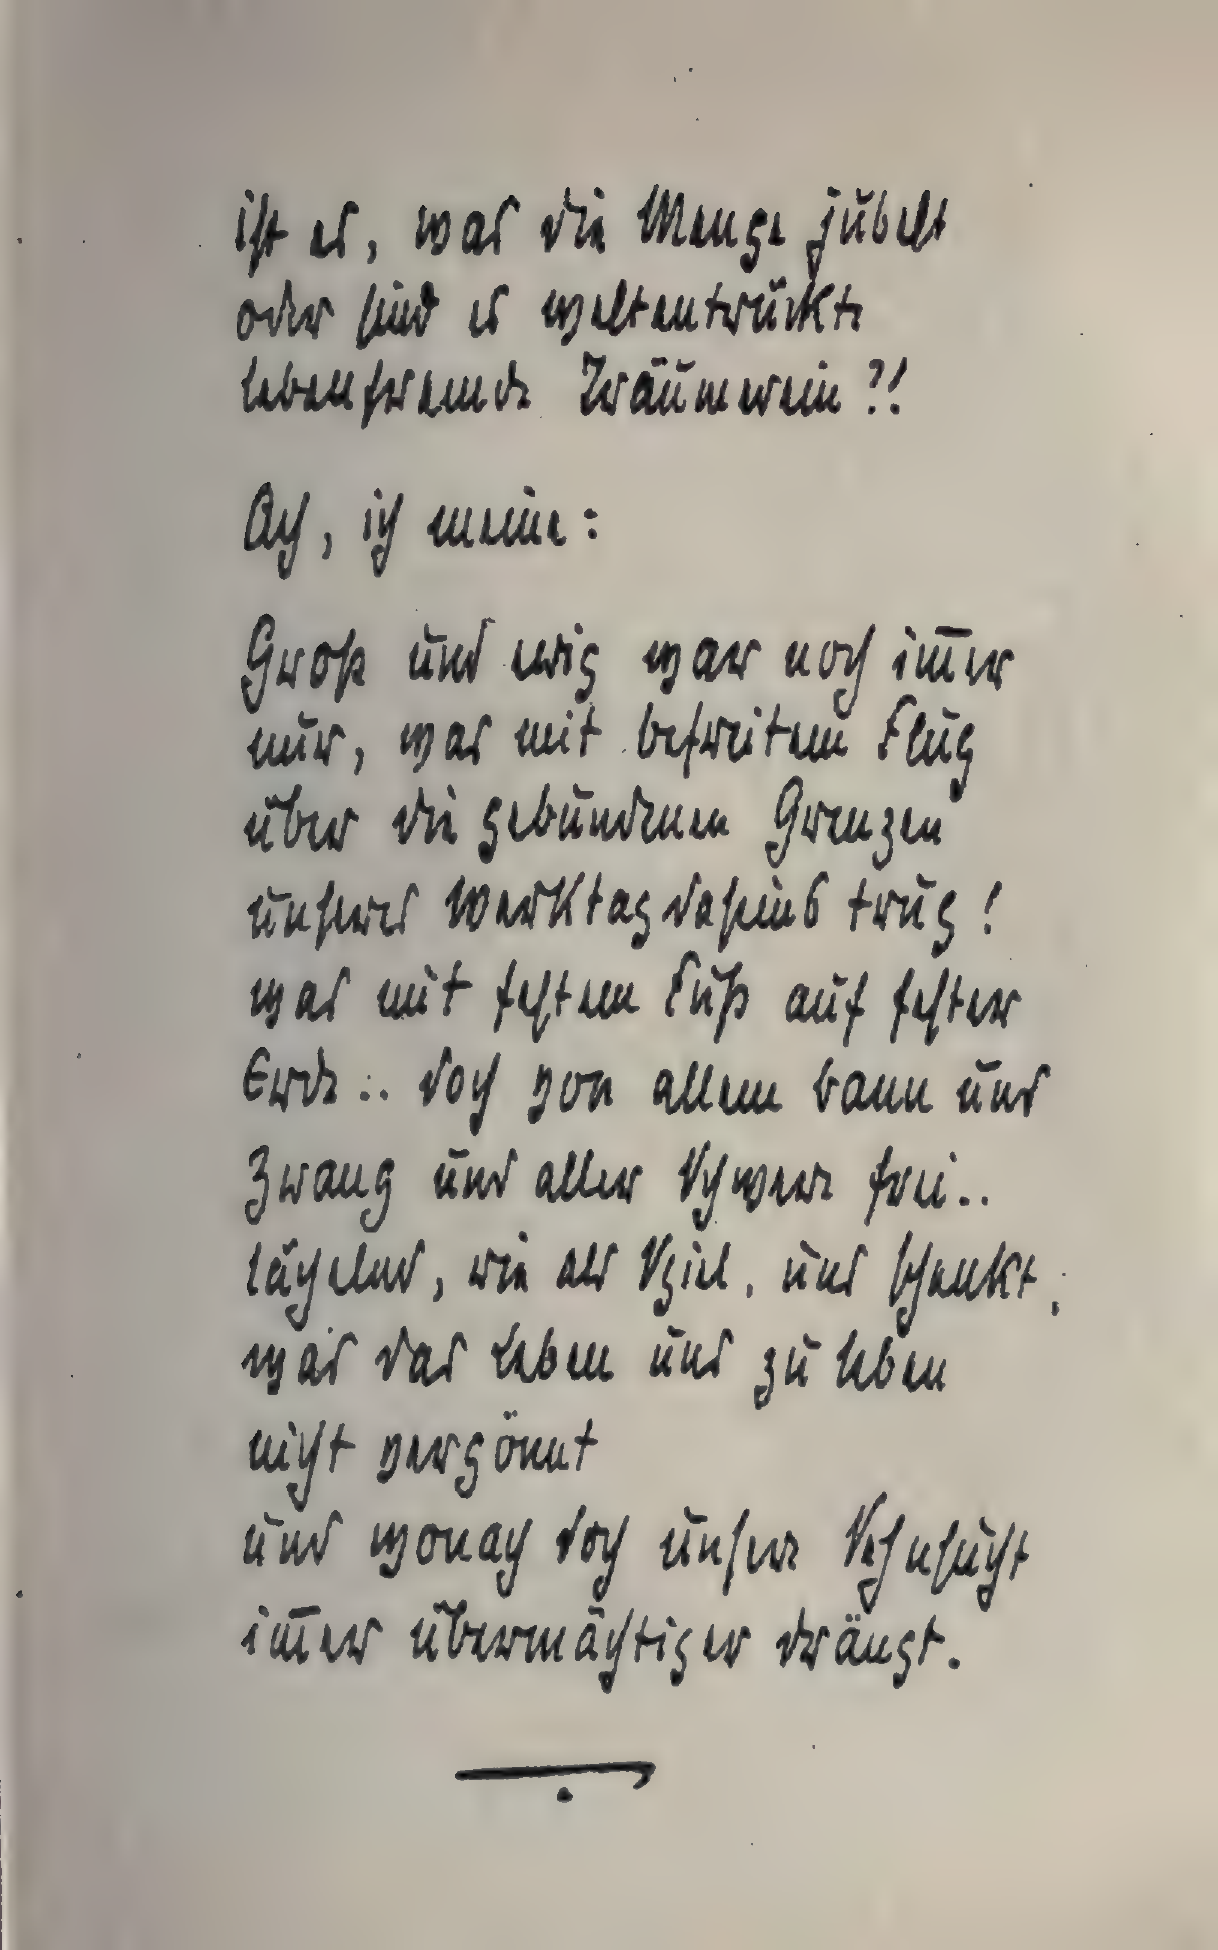 ist es, was die Menge jubelt
oder sind es weltentrückte
lebenfremde Träumerein?!
Ach, ich meine:
Groß und ewig war noch im̅er
nur, was mit befreitem Flug
über die gebundenen Grenzen
unseres Werktagdaseins trug!
was mit festem Fuß auf fester
Erde .. doch von allem bann und
Zwang und aller Schwere frei..
lächelnd, wie als Spiel, uns schenkt,
was das Leben uns zu leben
nicht vergönnt
und wonach doch unsere Sehnsucht
im̅er übermächtiger drängt.